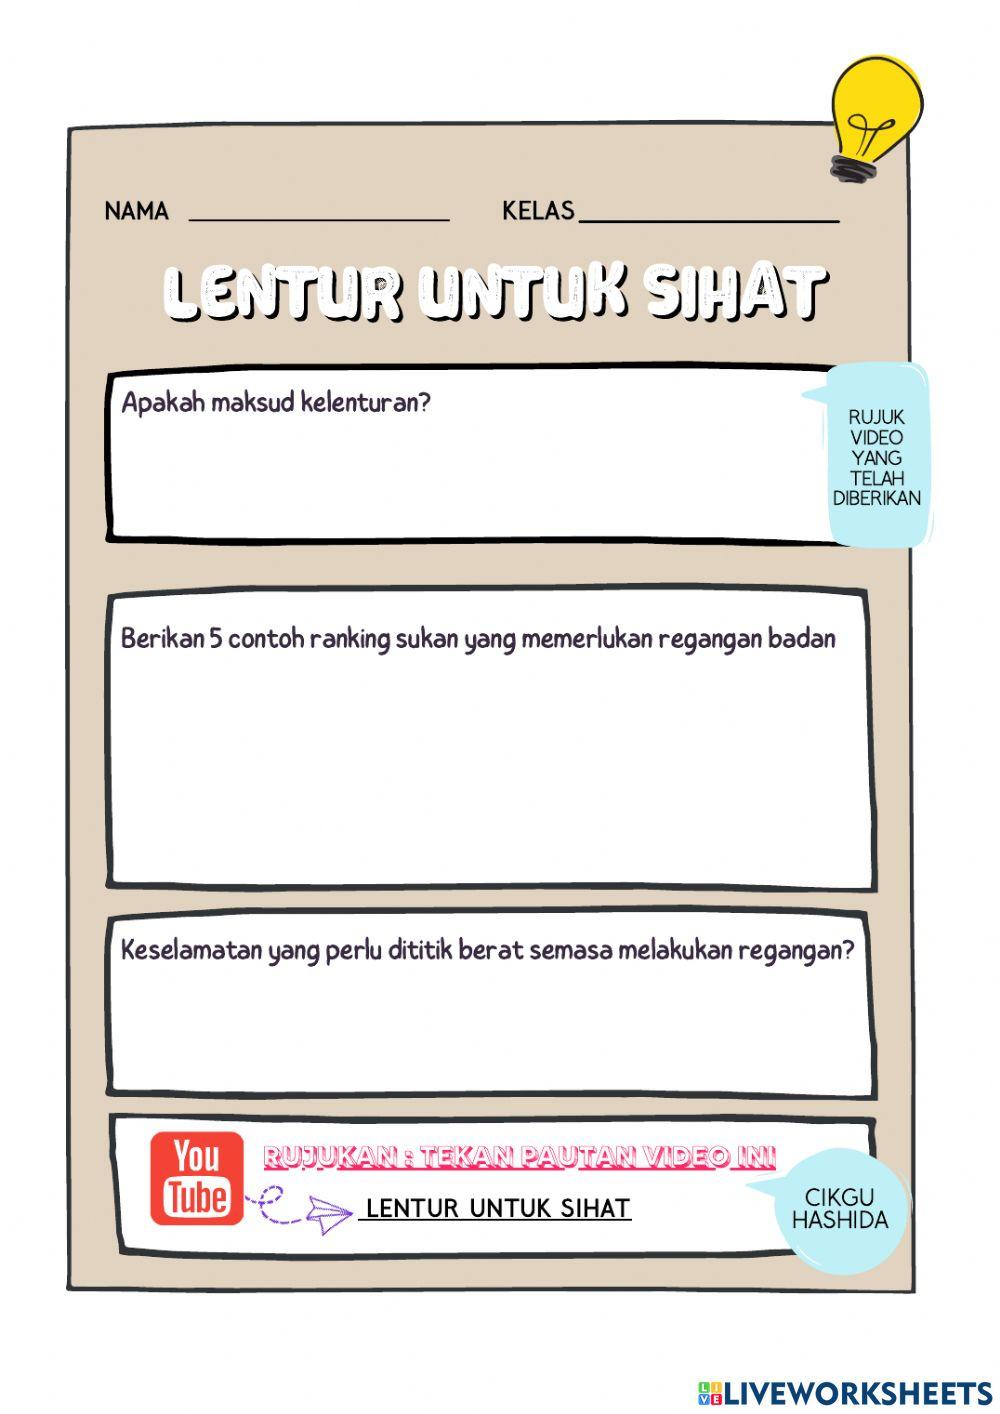 NAMA ____________ KELAS____________
LENTUR UNTUK SIHAT
Apakah maksud kelenturan?
RUJUK
VIDEO
YANG
TELAH
DIBERIKAN
Berikan 5 contoh ranking sukan yang memerlukan regangan badan
Keselamatan yang perlu dititik berat semasa melakukan regangan?
You
Tube
RUJUKAN : TEKAN PAUTAN VIDEO INI
LENTUR UNTUK SIHAT
CIKGU
HASHIDA
LIVE LIVEWORKSHEETS